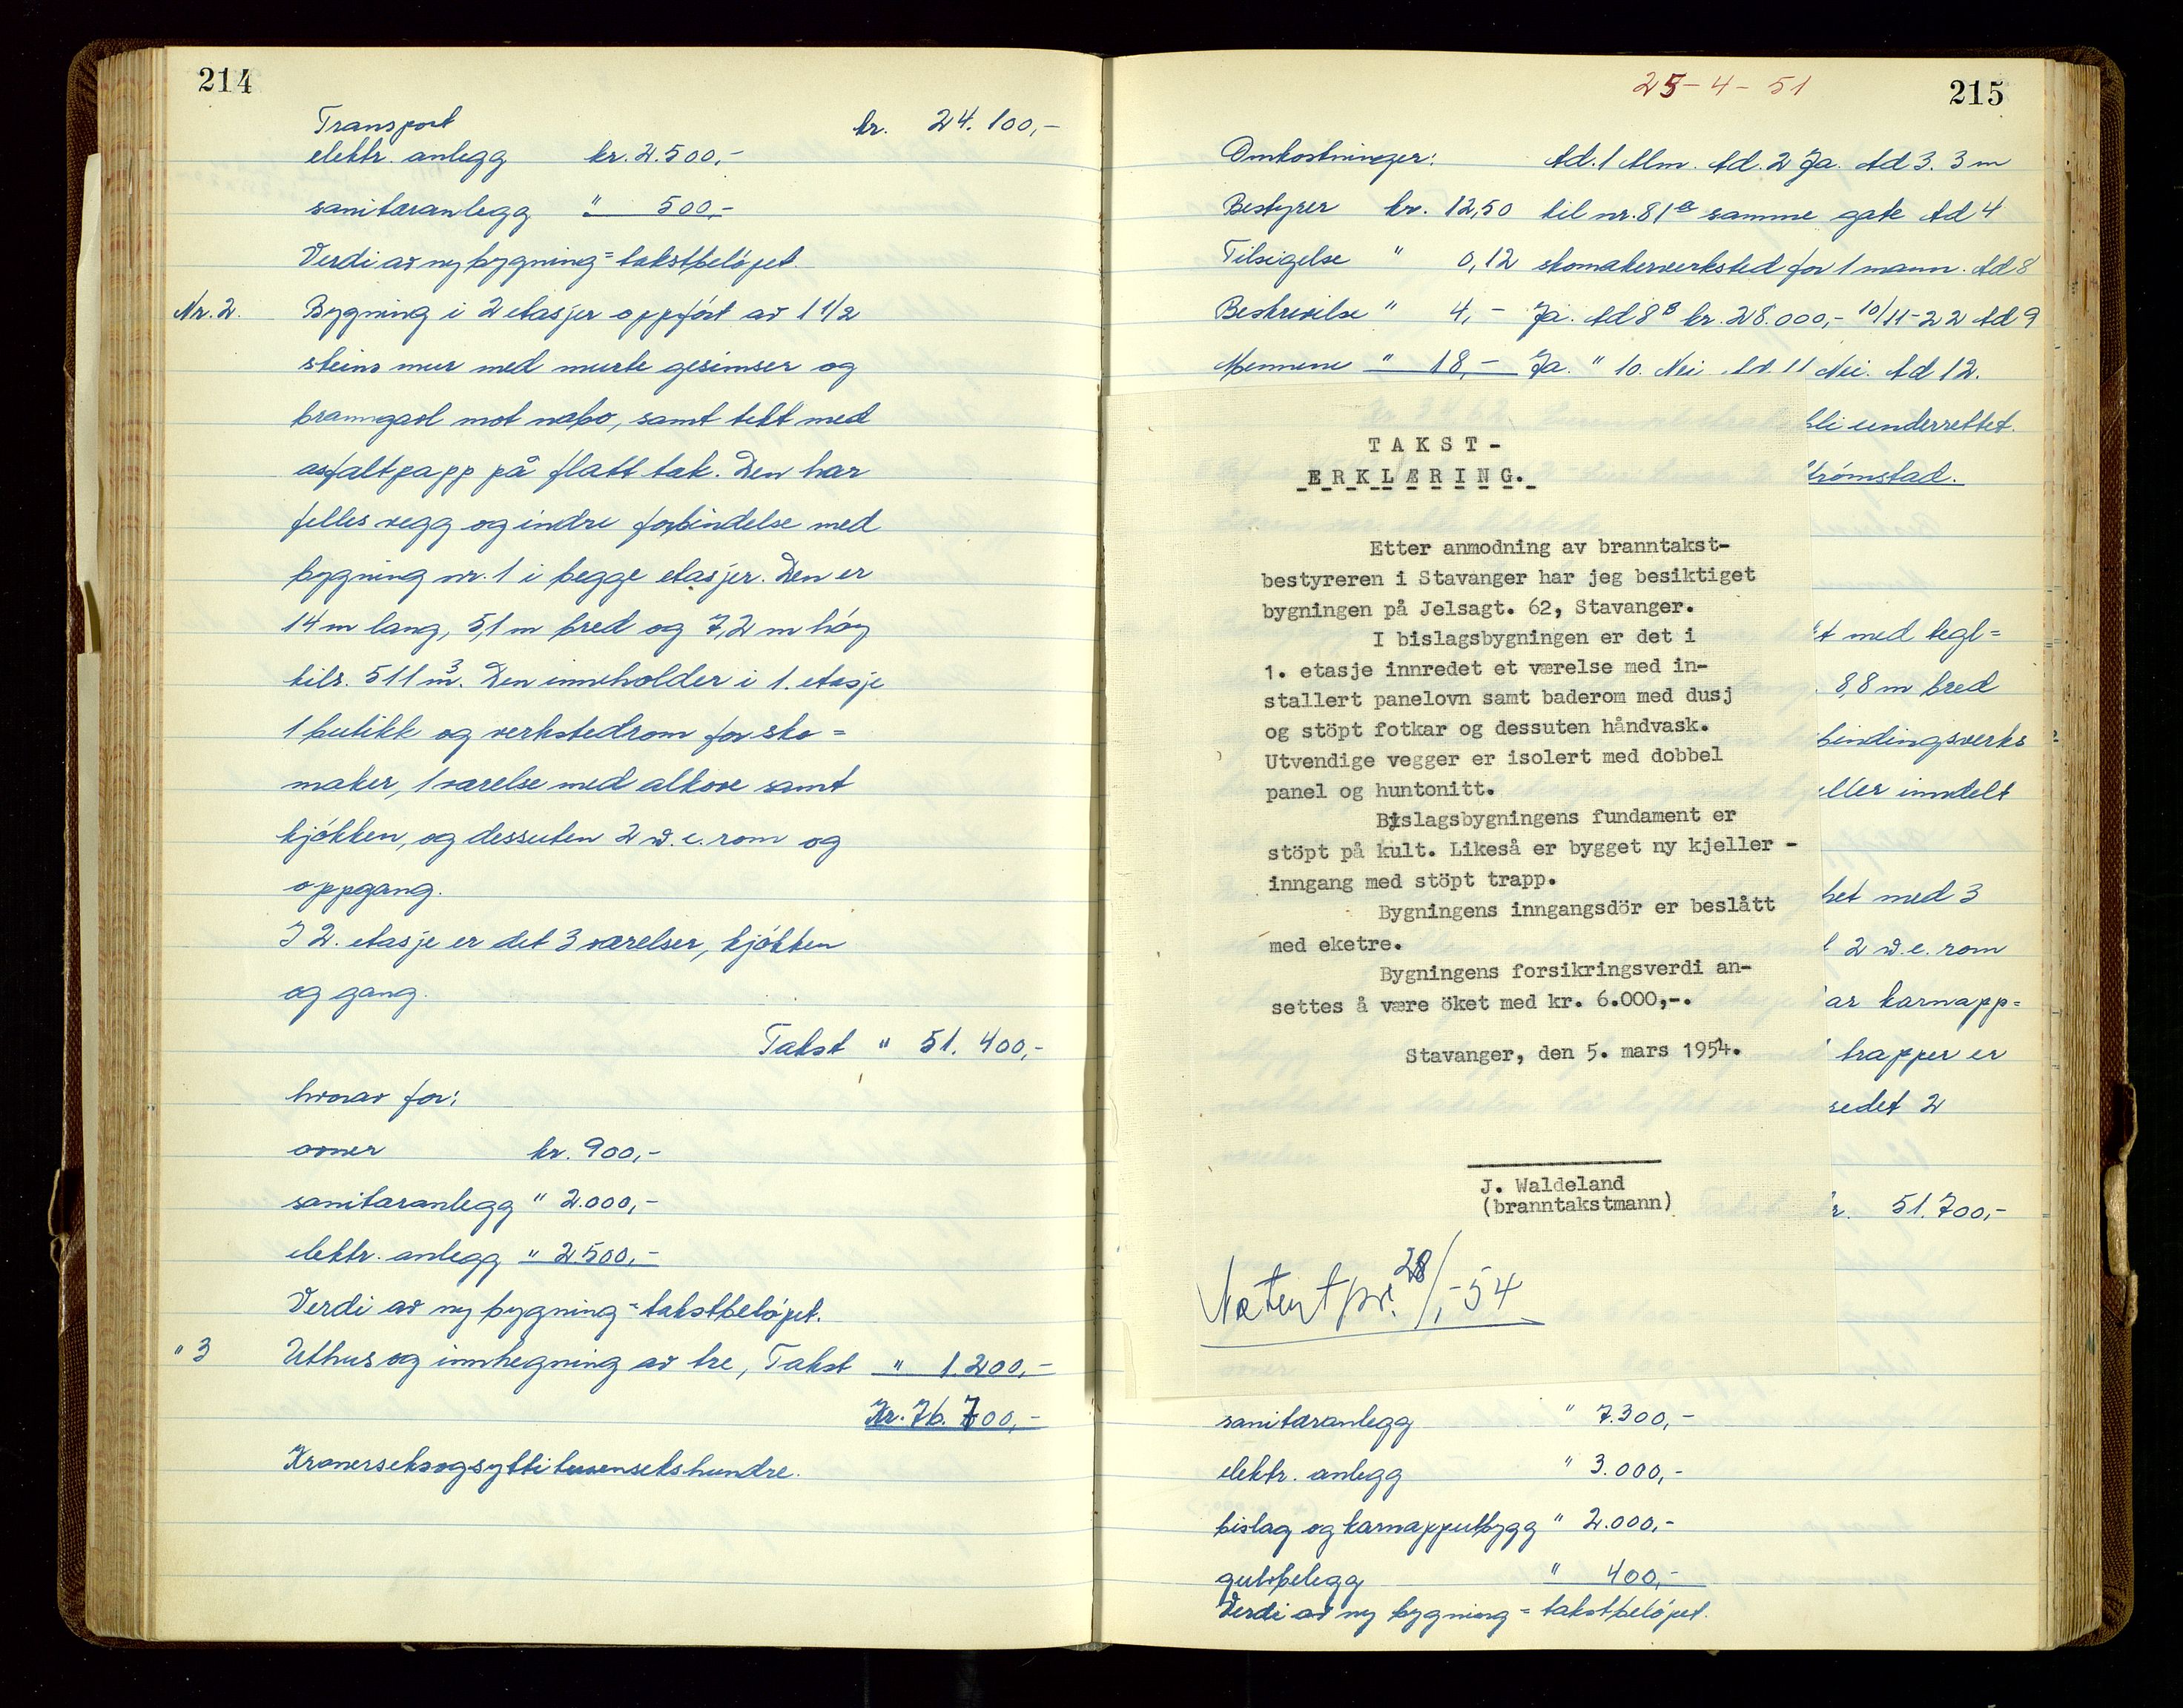 214
Transport kr. 24.100,-
elektr. anlegg kr. 2.500,-
sanitæranlegg " 500,-
Verdi av ny bygning = takstbeløpet.
Nr. 2. Bygning i 2 etasjer oppført av 1 1/2
steins mur med murte gesimser og
branngavl mot nabo, samt tekt med
asfaltpapp på flatt tak. Den har
felles vegg og indre forbindelse med
bygning nr. 1 i begge etasjer. Den er
14 m lang, 5,1 m bred og 7,2 m høy
tils. 511 m³. Den inneholder i 1. etasje
1 butikk og verkstedrom for sko=
maker, 1 værelse med alkove samt
kjøkken, og dessuten 2 w.c. rom og
oppgang.
I 2. etasje er det 3 værelser, kjøkken
og gang.
Takst " 51.400,-
hvorav for:
ovner kr. 900,-
sanitæranlegg " 2.000,-
elektr. anlegg " 2.500,-
Verdi av ny bygning = takstbeløpet.
" 3 Uthus og innhegning av tre, Takst " 1.200,-
Kr. 76.700,-
Kronerseksogsyttitusensekshundre.
25-4-51
215
Omkostninger: Ad. 1 Alm. Ad. 2 Ja. Ad 3. 3 m
Bestyrer kr. 12,50 til nr. 81a samme gate Ad 4
Tilsigelse " 0,12 skomakerverksted for 1 mann. Ad 8
Beskrivelse " 4,- Ja. Ad 8B kr. 28.000,- 10/11-22 Ad 9
Mennene " 18,- Ja. " 10. Nei Ad. 11 Nei. Ad 12.
bli underrettet.
trømstad.
TAKST-
ERKLÆRING.
Etter anmodning av branntakst-
bestyreren i Stavanger har jeg besiktiget
bygningen på Jelsagt. 62, Stavanger.
I bislagsbygningen er det i
1. etasje innredet et værelse med in-
stallert panelovn samt baderom med dusj
og stöpt fotkar og dessuten håndvask.
Utvendige vegger er isolert med dobbel
panel og huntonitt.
Bislagsbygningens fundament er
stöpt på kult. Likeså er bygget ny kjeller -
inngang med stöpt trapp.
Bygningens inngangsdör er beslått
med eketre.
Bygningens forsikringsverdi an-
settes å være öket med kr. 6.000,-.
Stavanger, den 5. mars 1954.
J. Waldeland
(branntakstmann)
Notert pr. 28/1-54
t med tegl=
8,8 m bred
bindingsverks
eller inndelt
het med 3
l 2 w.c. rom
ar karnapp=
trapper er
redet 2
kr. 51.700,-
sanitæranlegg " 7.300,-
elektr. anlegg " 3.000,-
bislag og karnapputbygg " 2.000,-
gulvbelegg " 400,-
Verdi av ny bygning = takstbeløpet.